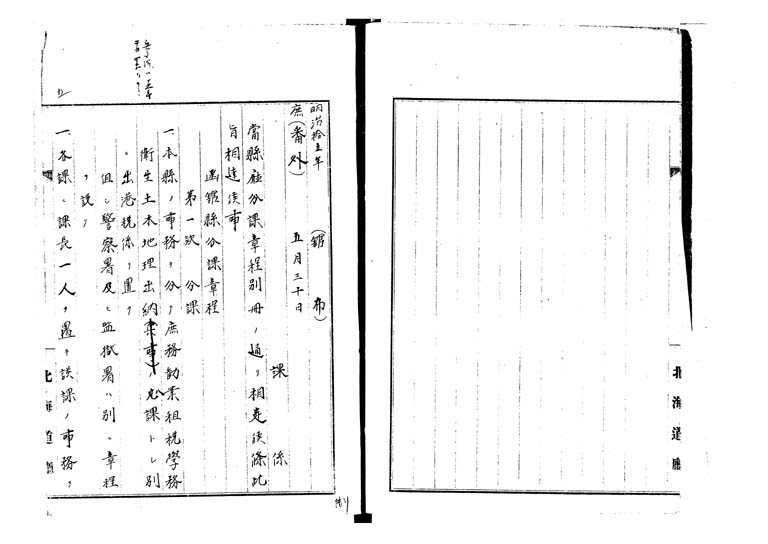 明治拾五年
庶(番外)
(館布)
五月三十日
課係
當縣廳分課章程別冊ノ通リ相定候條此
旨相達候事
函館縣分課章程
第一欵 分課
一、本縣ノ事務ヲ分チ庶務勧業租税學務
衛生土木地理出納ノ 課トシ別
ニ出港税係ヲ置ク
但シ警察署及ヒ監獄署ハ別ニ章程
ヲ設ク
一、各課ニ課長一人ヲ置キ該課ノ事務ヲ
北海道廳
北海道廳